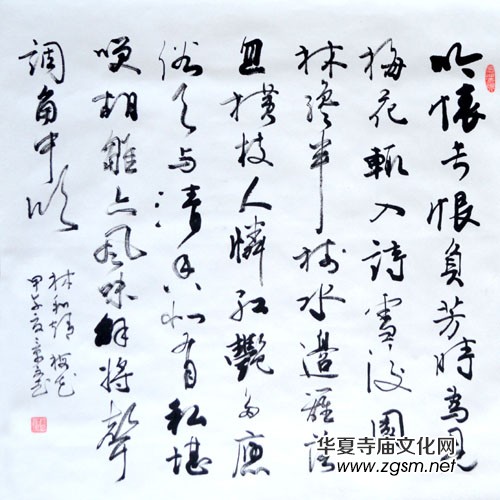 吟懷長恨負芳時為見
梅花輒入詩雪後園
林纔半樹水邊籬落
忽橫枝人憐紅艷多應
俗天與清香似有私堪
咲胡雛亦風味解將聲
調角中吹
林和靖梅花
甲午夏
华夏寺庙文化网
www.zgsm.net